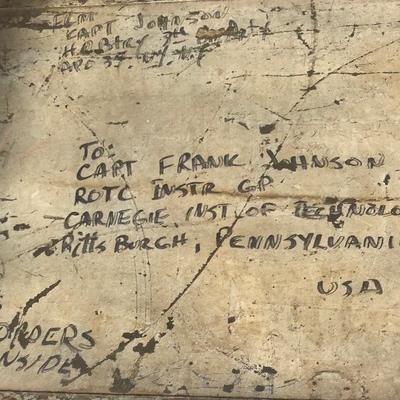 FROM
CAPT JOHNSON
HQ Btry 7th
APO 35. N.Y. N.Y
TO:
CAPT FRANK JOHNSON
ROTC INSTR GP
CARNEGIE INST OF TECHNOLO
PittsBURGH, PENNSYLVANI
USA
ORDERS
INSIDE